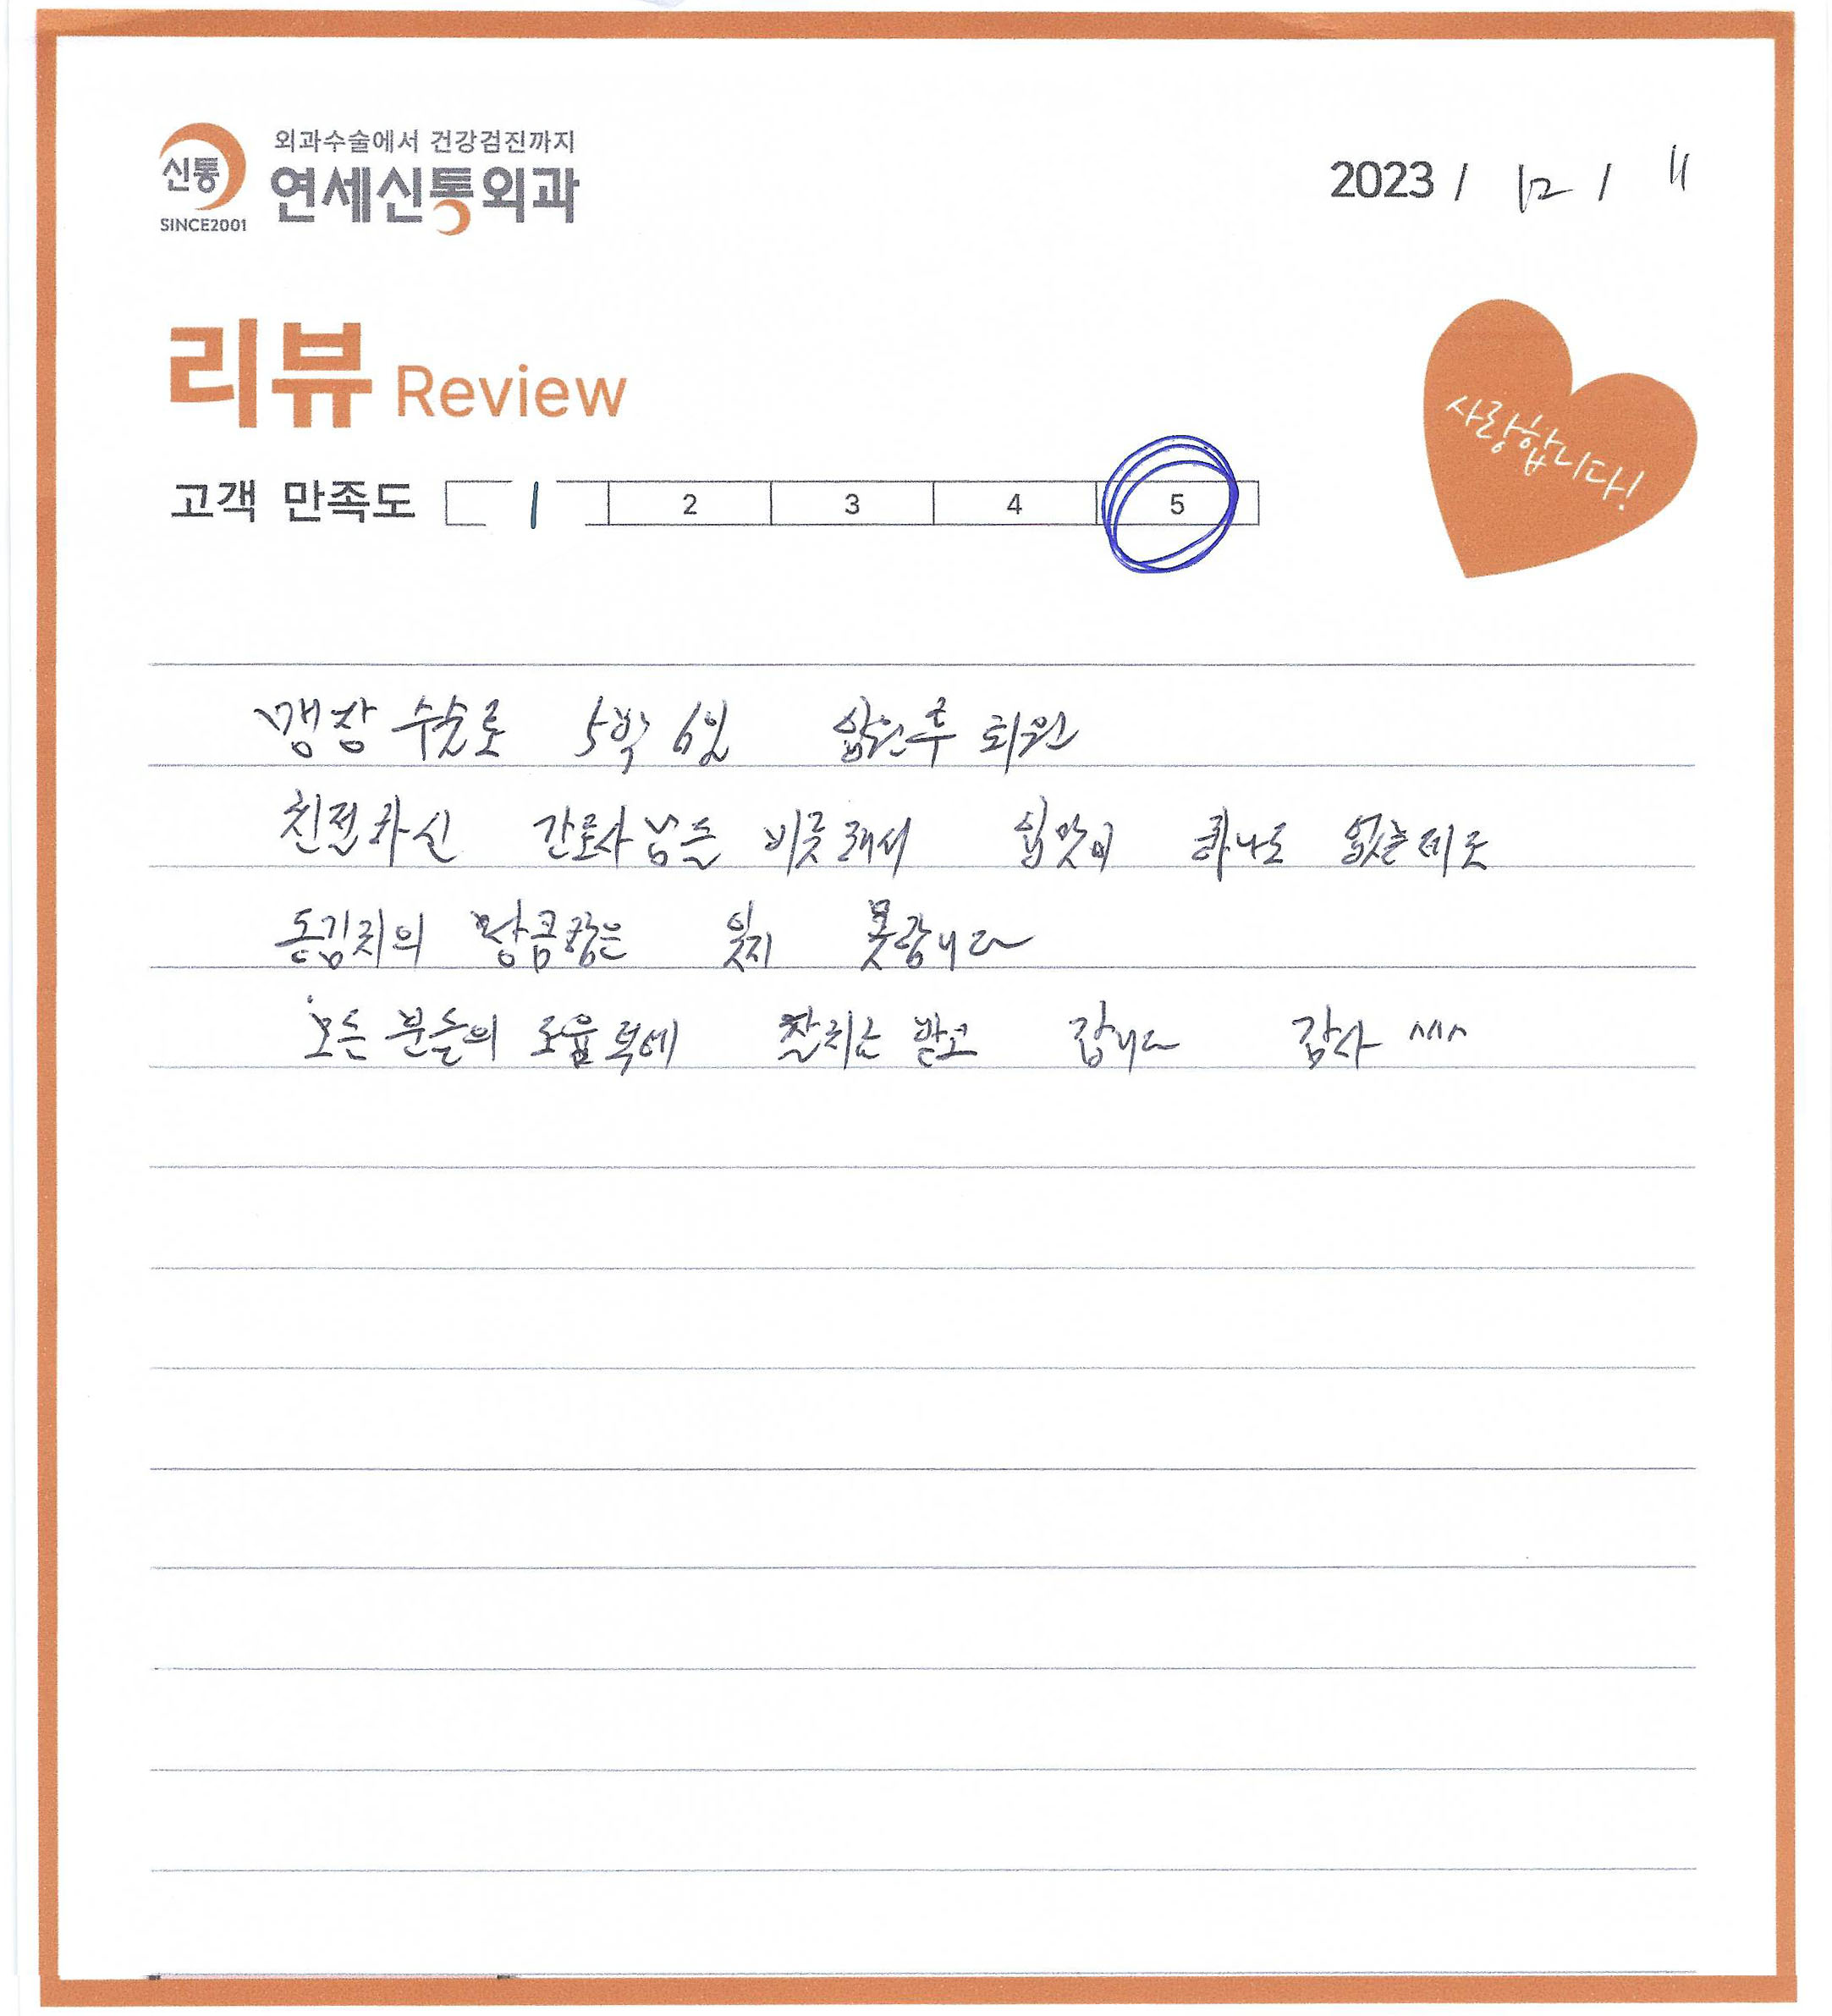 외과수술에서 건강검진까지
신통 연세신통외과
SINCE2001
2023 / 12 / 11
리뷰 Review
사랑합니다!
고객 만족도 1 2 3 4 5
맹장 수술로 5박 6일 입원후 퇴원
친절하신 간호사님들 비롯해서 입맛이 하나도 없는데도
동김치의 땅콤함은 잊지 못합니다
모든 분들의 도움 덕에 잘치료 받고 갑니다 감사 ^^^